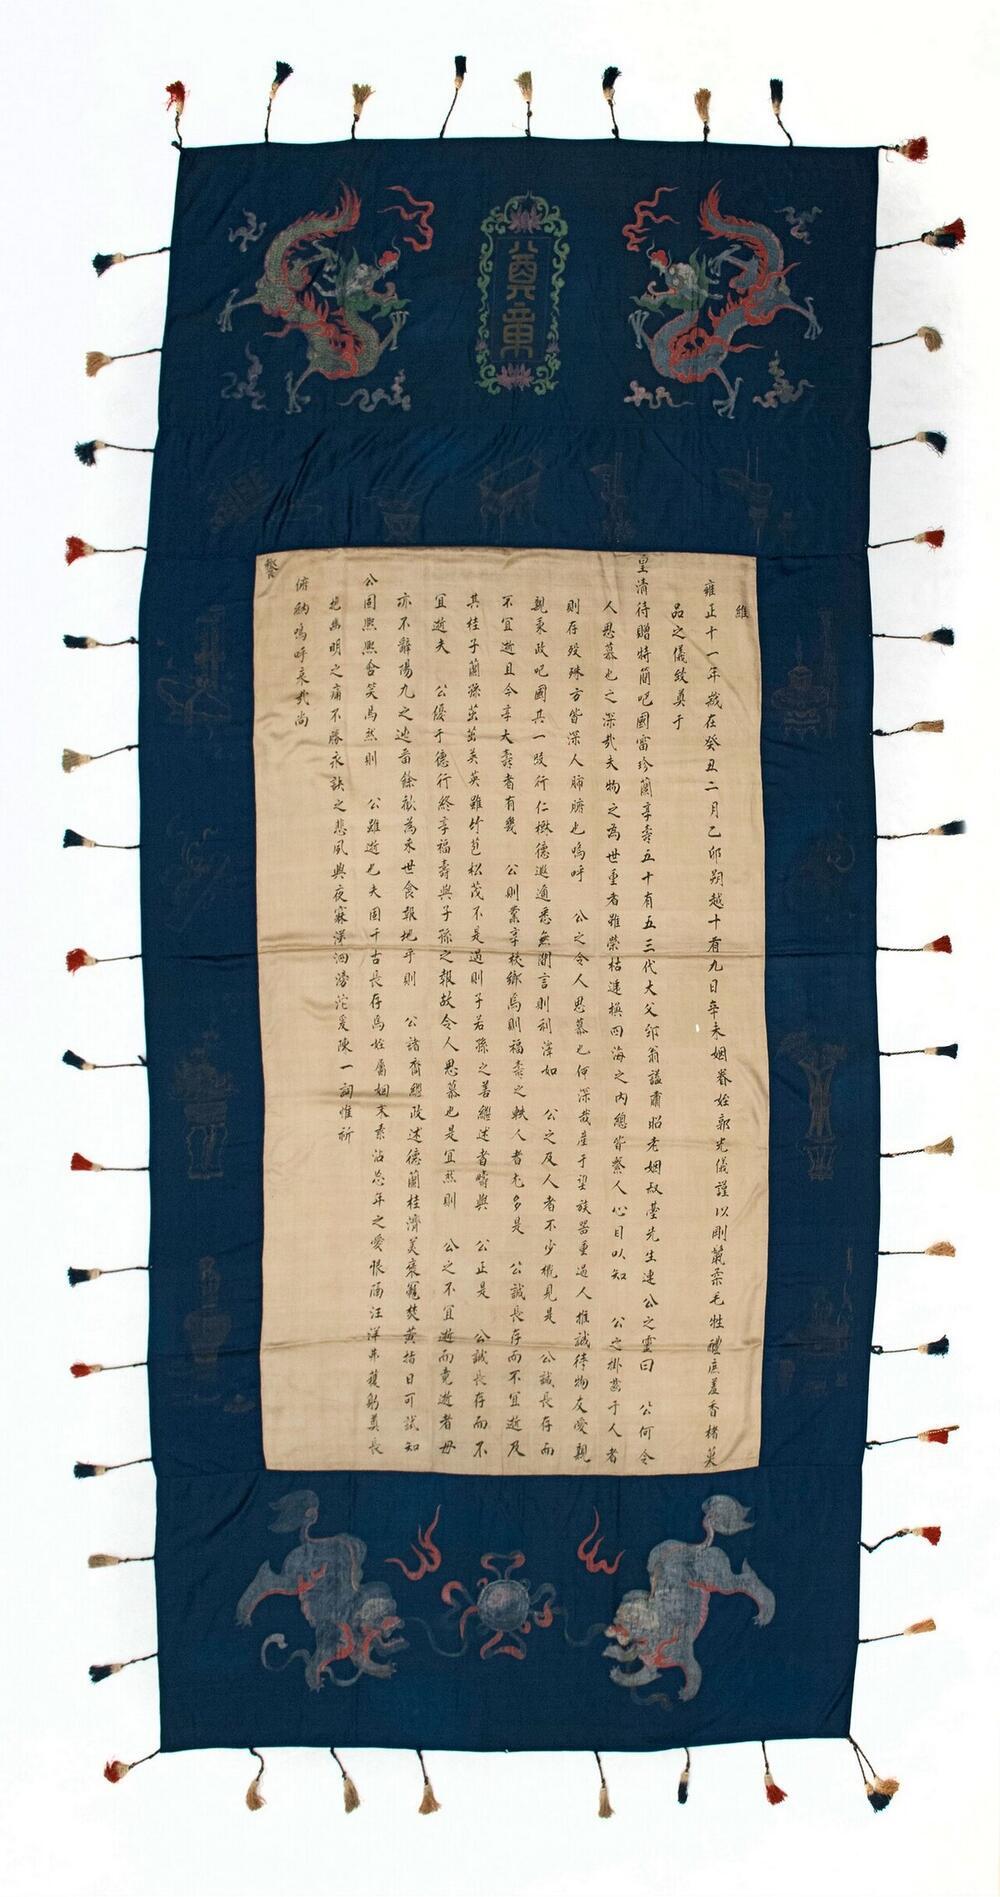 奠章
維
雍正十一年歲在癸丑二月乙卯朔越十有九日辛未姻眷姪郭光儀謹以剛鬣柔毛牲醴庶羞香楮菓
品之儀致奠于
皇清待贈特簡吧國富珍蘭享壽五十有五三代大父邱翁謚肅昭老姻叔臺先生連公之靈曰 公何令
人思慕也之深哉夫物之為世重者雖榮枯遞換四海之內總皆繫人心目以知 公之掛吾于人者
則存歿殊方皆深人肺腑也嗚呼 公之令人思慕也何深哉產于望族器重過人推誠待物友愛親
親秉政吧國其一段行仁樹德遐邇悉無閒言則利澤如 公之及人者不少概見是 公誠長存而
不宜逝且今享大壽者有幾 公則業享杖鄉焉則福壽之軼人者尤多是 公誠長存而不宜逝及
其桂子蘭孫茁茁英英雖竹苞松茂不是過則子若孫之善繼述者疇與 公正是 公誠長存而不
宜逝夫 公優于德行終享福壽與子孫之報故令人思慕也是宜然則 公之不宜逝而竟逝者毋
亦不辭陽九之 留餘歡為來世食報地乎則 公諸裔繼政述德蘭桂濟美 焚黃指日可試知
公固熙熙含笑焉然則 公雖逝也夫固千古長存焉姪屬姻末素沾忘年之愛恨隔汪洋弗獲躬奠長
抱幽明之痛不勝永訣之悲夙興夜寐涕泗滂沱爰陳一詞惟祈
俯納嗚呼哀哉尚
饗